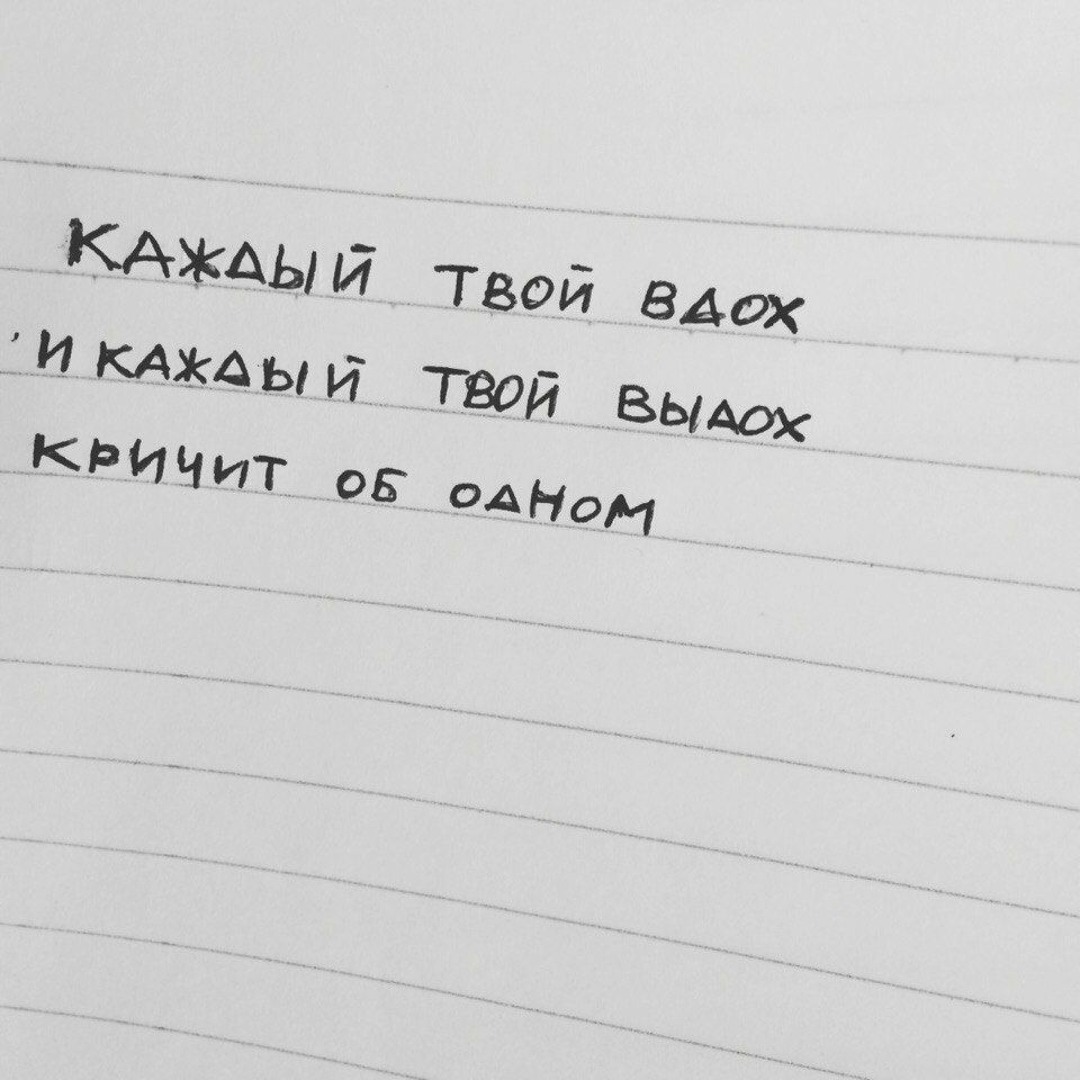 КАЖДЫЙ ТВОЙ ВДОХ
И КАЖДЫЙ ТВОЙ ВЫДОХ
КРИЧИТ ОБ ОДНОМ